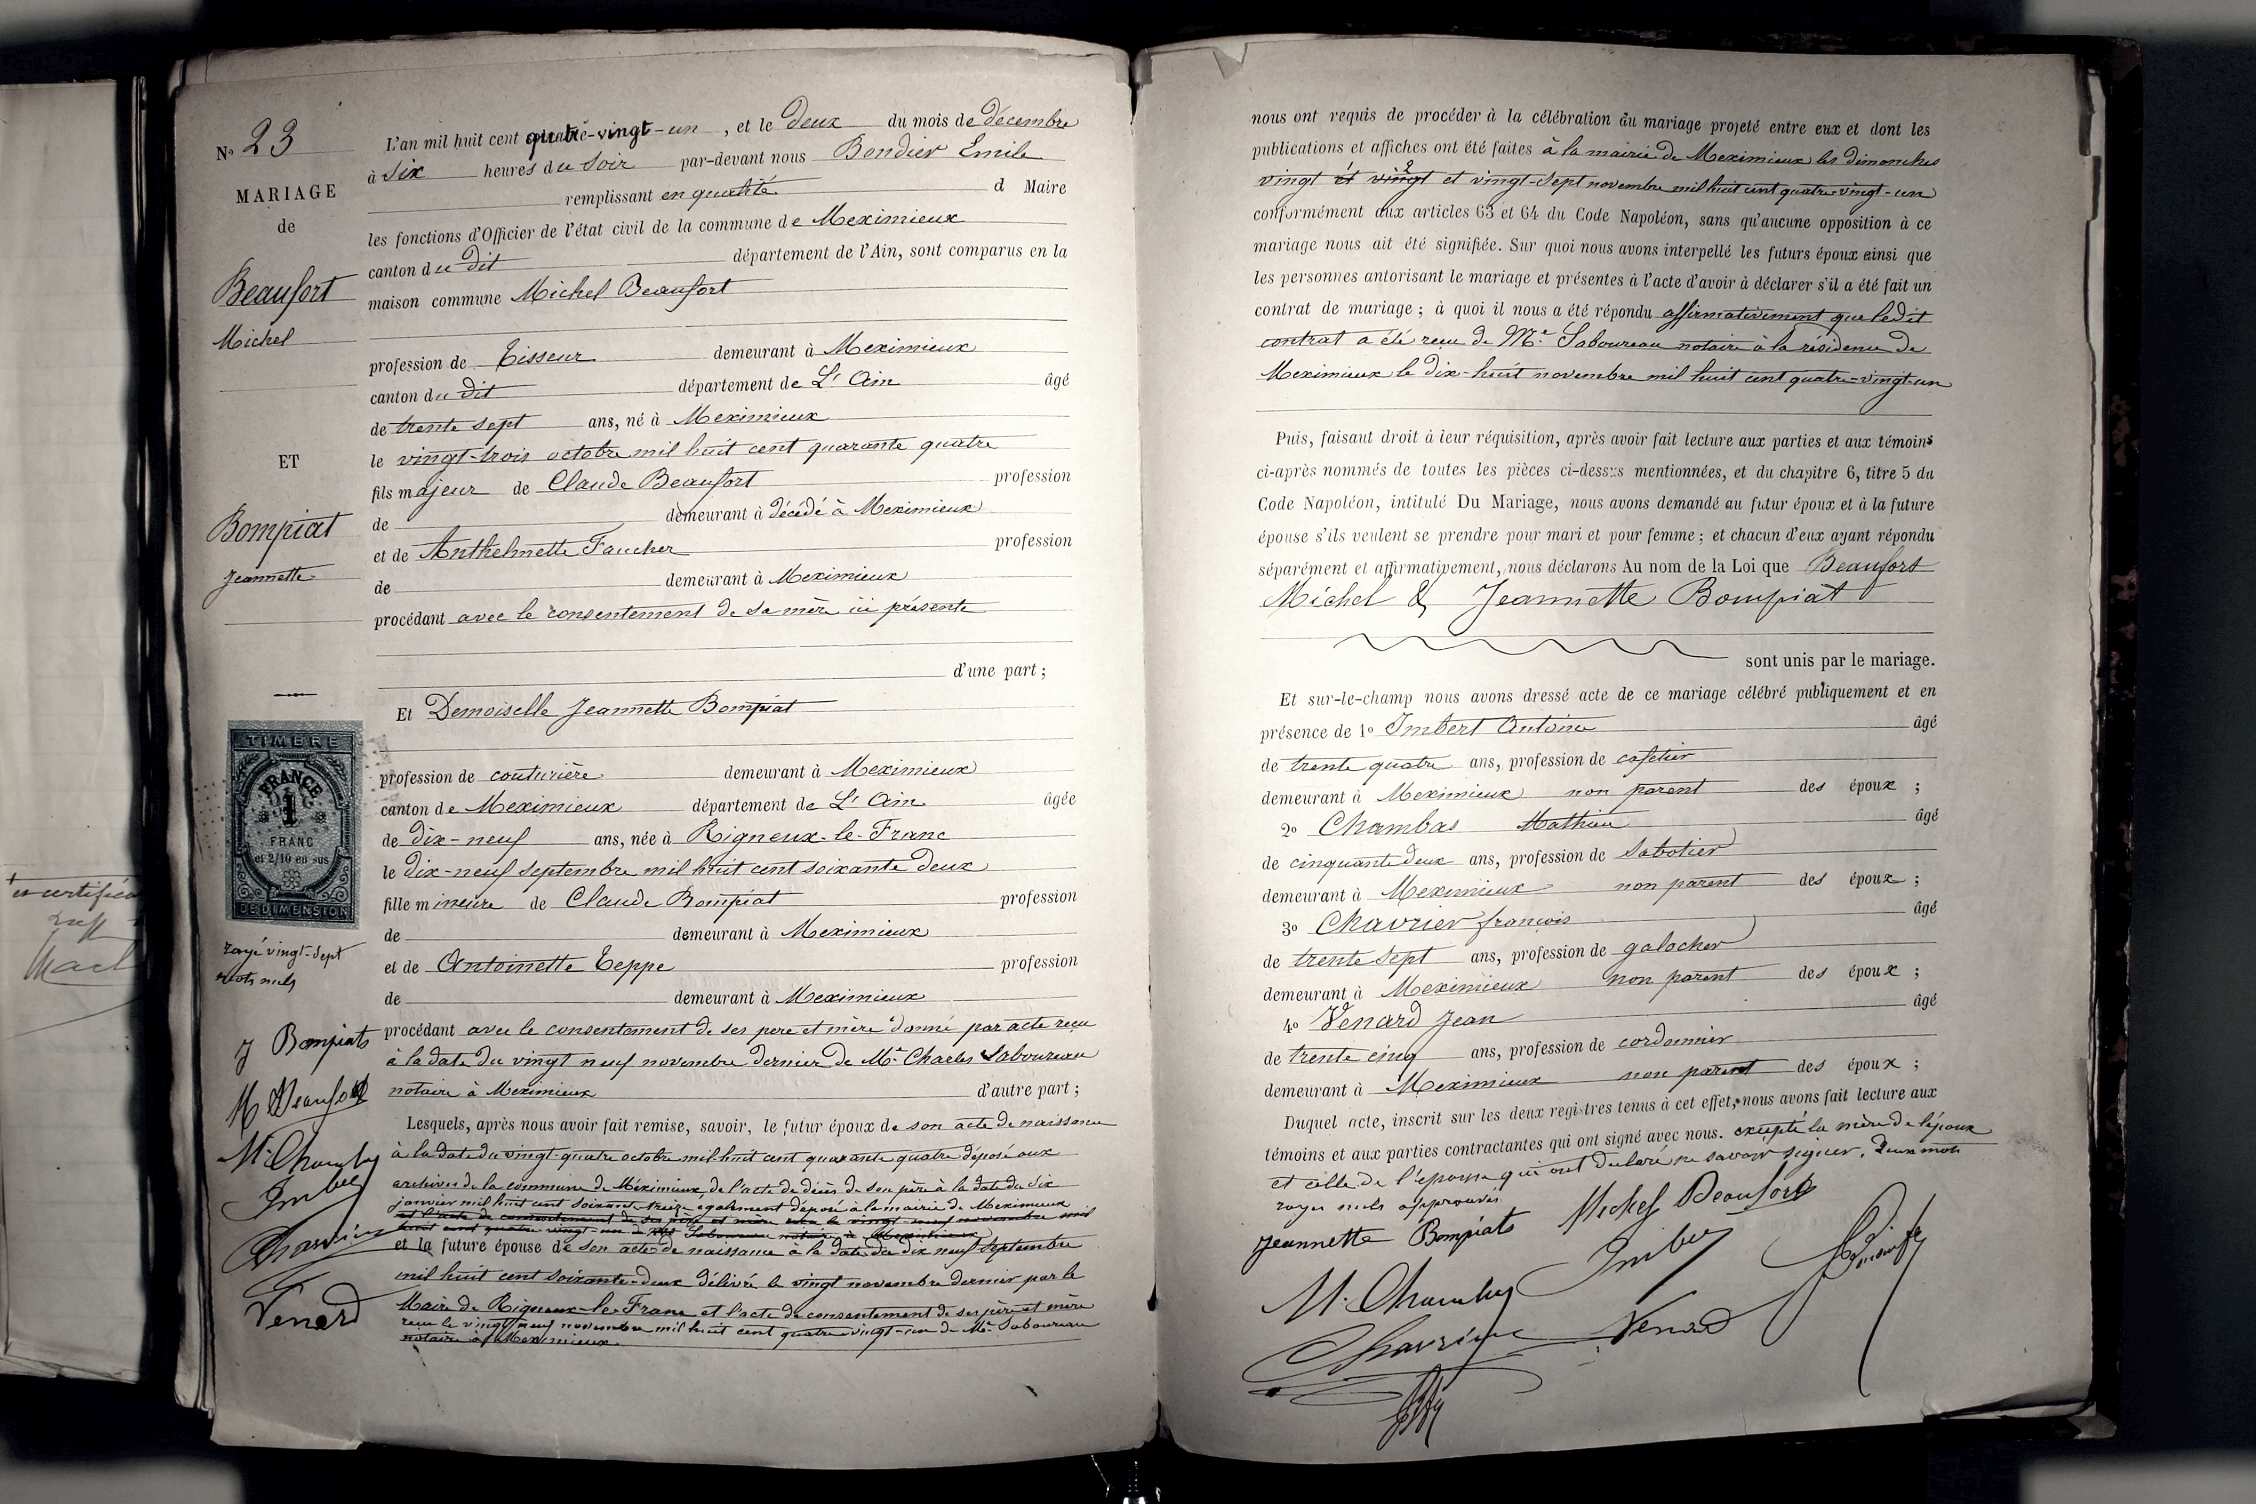 No 23
MARIAGE
de
Beaufort
Michel
ET
Bompiat
Jeannette
TIMBRE
FRANCE
1
FRANC
et 2/10 en sus
DE DIMENSION
rayé vingt-sept
mots nuls
J Bompiats
M Beaufort
M. Chambas
Imbert
Chavrier
Venard
L'an mil huit cent quatre-vingt-un, et le deux du mois de décembre
à six heures du soir par-devant nous Bendier Emile
remplissant en qualité d Maire
les fonctions d'Officier de l'état civil de la commune de Meximieux
canton du dit département de l'Ain, sont comparus en la
maison commune Michel Beaufort
profession de Tisseur demeurant à Meximieux
canton du dit département de L'Ain âgé
de trente sept ans, né à Meximieux
le vingt-trois octobre mil huit cent quarante quatre
fils majeur de Claude Beaufort profession
de demeurant à décédé à Meximieux
et de Anthelmette Faucher profession
de demeurant à Meximieux
procédant avec le consentement de sa mère ici présente
d'une part ;
Et Demoiselle Jeannette Bompiat
profession de couturière demeurant à Meximieux
canton de Meximieux département de L'Ain âgée
de dix-neuf ans, née à Rigneux-le-Franc
le dix-neuf septembre mil huit cent soixante deux
fille mineure de Claude Bompiat profession
de demeurant à Meximieux
et de Antoinette Teppe profession
de demeurant à Meximieux
procédant avec le consentement de ses pere et mère donné par acte reçu
à la date du vingt neuf novembre dernier de Me Charles Saboureau
notaire à Meximieux d'autre part ;
Lesquels, après nous avoir fait remise, savoir, le futur époux de son acte de naissance
à la date du vingt-quatre octobre mil-huit cent quarante quatre déposé aux
archives de la commune de Meximieux, de l'acte de décès de son père à la date du six
janvier mil huit cent soixante-treize également déposé à la mairie de Meximieux
et l'acte de consentement de ses père et mère le vingt neuf novembre mil
huit cent quatre vingt-un de Me Saboureau notaire à Meximieux
et la future épouse de son acte de naissance à la date du dix neuf septembre
mil huit cent soixante-deux délivré le vingt novembre dernier par le
Maire de Rigneux-le-Franc et l'acte de consentement de ses père et mère
reçu le vingt neuf novembre mil huit cent quatre vingt-un de Me Saboureau
notaire à Meximieux
nous ont requis de procéder à la célébration du mariage projeté entre eux et dont les
publications et affiches ont été faites à la mairie de Meximieux les dimanches
vingt et vingt et vingt-sept novembre mil huit cent quatre vingt-un
conformément aux articles 63 et 64 du Code Napoléon, sans qu'aucune opposition à ce
mariage nous ait été signifiée. Sur quoi nous avons interpellé les futurs époux ainsi que
les personnes autorisant le mariage et présentes à l'acte d'avoir à déclarer s'il a été fait un
contrat de mariage ; à quoi il nous a été répondu affirmativement que ledit
contrat a été reçu de Me Saboureau notaire à la résidence de
Meximieux le dix-huit novembre mil huit cent quatre-vingt-un
Puis, faisant droit à leur réquisition, après avoir fait lecture aux parties et aux témoins
ci-après nommés de toutes les pièces ci-dessus mentionnées, et du chapitre 6, titre 5 du
Code Napoléon, intitulé Du Mariage, nous avons demandé au futur époux et à la future
épouse s'ils veulent se prendre pour mari et pour femme ; et chacun d'eux ayant répondu
séparément et affirmativement, nous déclarons Au nom de la Loi que Beaufort
Michel & Jeannette Bompiat
sont unis par le mariage.
Et sur-le-champ nous avons dressé acte de ce mariage célébré publiquement et en
présence de 1o Imbert Antoine âgé
de trente quatre ans, profession de cafetier
demeurant à Meximieux non parent des époux ;
2o Chambas Mathieu âgé
de cinquante deux ans, profession de sabotier
demeurant à Meximieux non parent des époux ;
3o Chavrier françois âgé
de trente sept ans, profession de galocher
demeurant à Meximieux non parent des époux ;
4o Venard Jean âgé
de trente cinq ans, profession de cordonnier
demeurant à Meximieux non parent des époux ;
Duquel acte, inscrit sur les deux registres tenus à cet effet, nous avons fait lecture aux
témoins et aux parties contractantes qui ont signé avec nous. excepté la mère de l'époux
et celle de l'épouse qui ont déclaré ne savoir signer. Deux mots
rayés nuls approuvés
Jeannette Bompiats Michel Beaufort
M. Chambas Imbert
Chavrier Venard